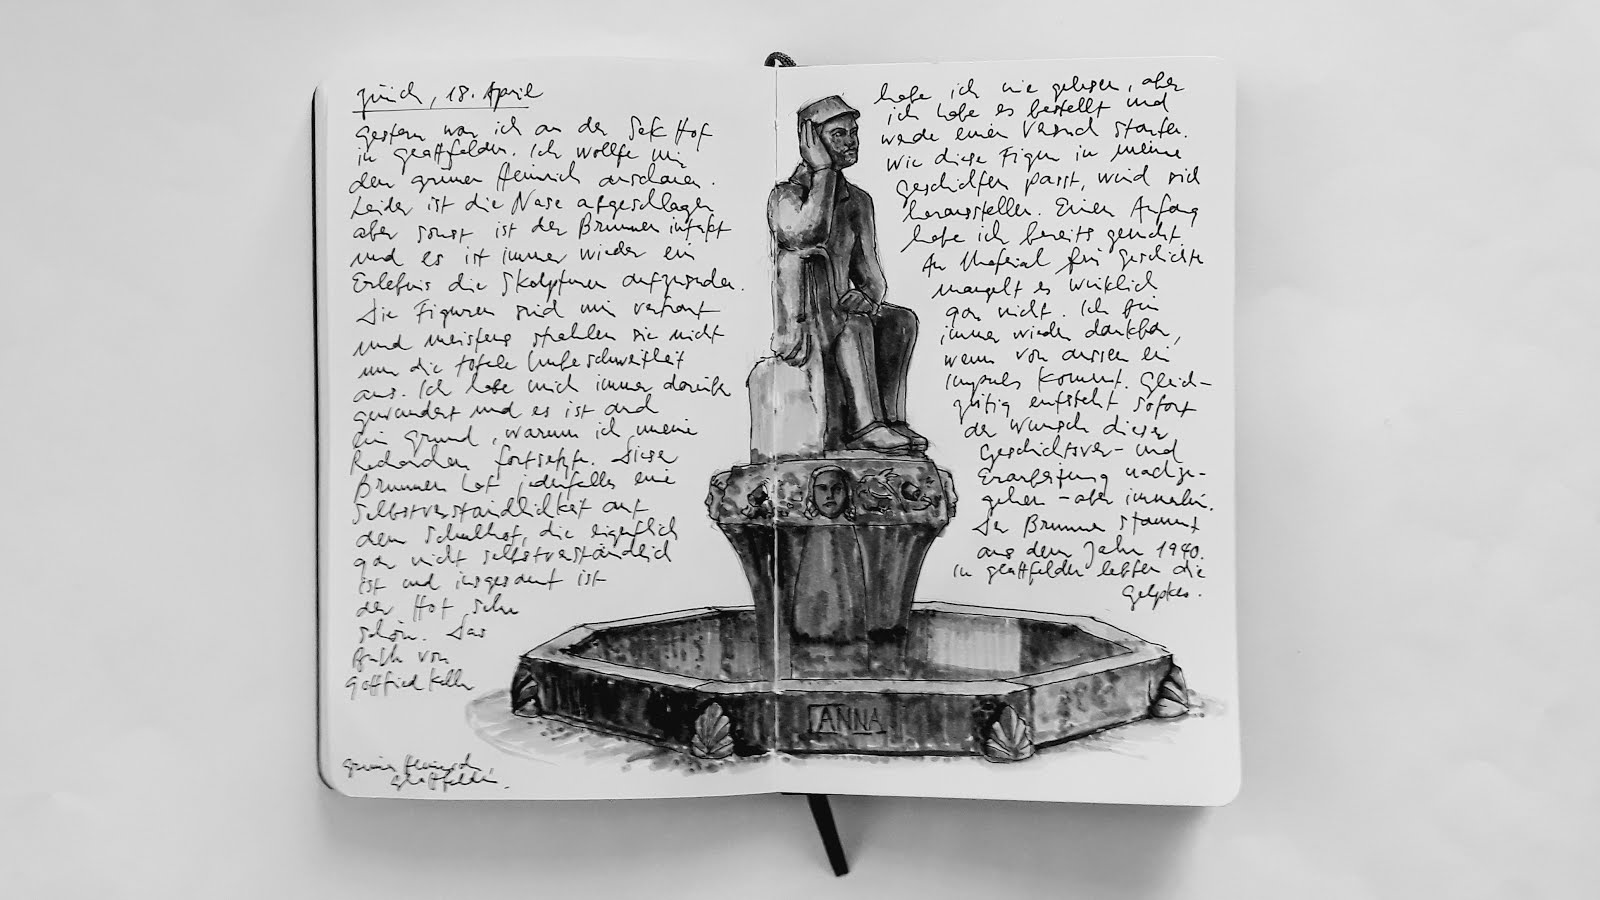 Zürich, 18. April
gestern war ich an der Sek Hof
in Glattfelden. Ich wollte mir
den grünen Heinrich anschauen.
Leider ist die Nase abgeschlagen
aber sonst ist der Brunnen intakt
und es ist immer wieder ein
Erlebnis die Skulpturen aufzusuchen.
Die Figuren sind mir vertraut
und meistens strahlen sie nicht
nur die totale Unbeschwertheit
aus. Ich habe mich immer darüber
gewundert und es ist auch
ein Grund, warum ich meine
Recherchen fortsetze. Dieser
Brunnen hat jedenfalls eine
Selbstverständlichkeit auf
dem Schulhof, die eigentlich
gar nicht selbstverständlich
ist und insgesamt ist
der Hof sehr
schön. Das
Buch von
Gottfried Keller
Grüner Heinrich
Glattfelden.
habe ich nie gelesen, aber
ich habe es bestellt und
werde einen Versuch starten.
Wie diese Figur in meine
Geschichten passt, wird sich
herausstellen. Einen Anfang
habe ich bereits gemacht
An Material für Geschichte
mangelt es wirklich
gar nicht. Ich bin
immer wieder dankbar,
wenn von aussen ein
Impuls kommt. Gleich-
zeitig entsteht sofort
der Wunsch dieser
Geschichtsver- und
Erarbeitung nachzu-
gehen - aber immerhin.
Der Brunnen stammt
aus dem Jahr 1940.
In Glattfelden lebten die
Gelpkes.
ANNA